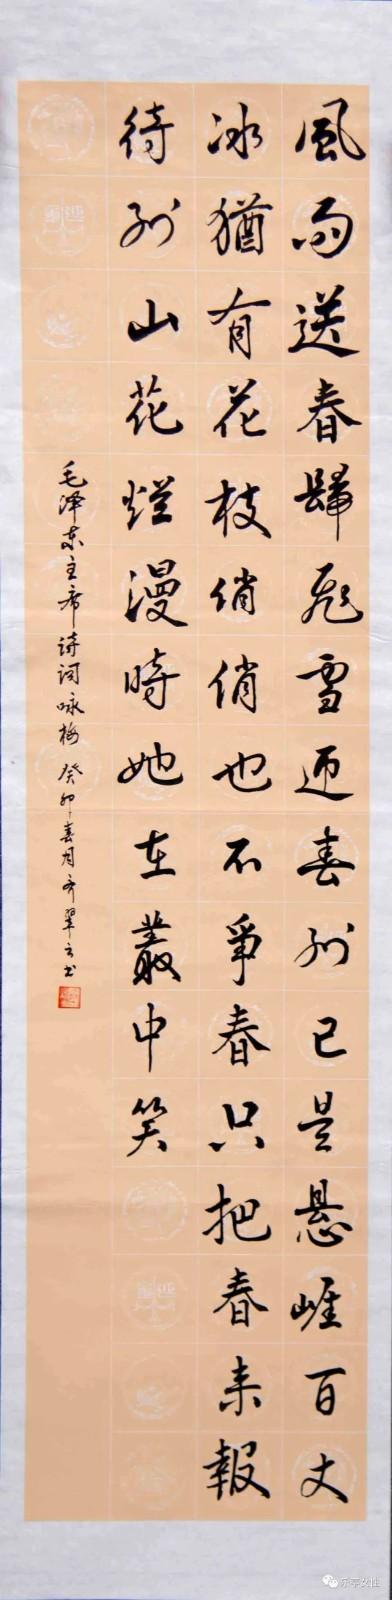 風雨送春歸飛雪迎春到已是悬崖百丈
冰猶有花枝俏俏也不爭春只把春来報
待到山花爛漫時她在叢中笑
毛泽东主席诗词咏梅 癸卯春月齐翠云书
乐亭女性